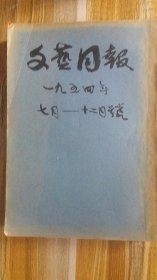 文藝月報
一九五四年
七月——十二月号